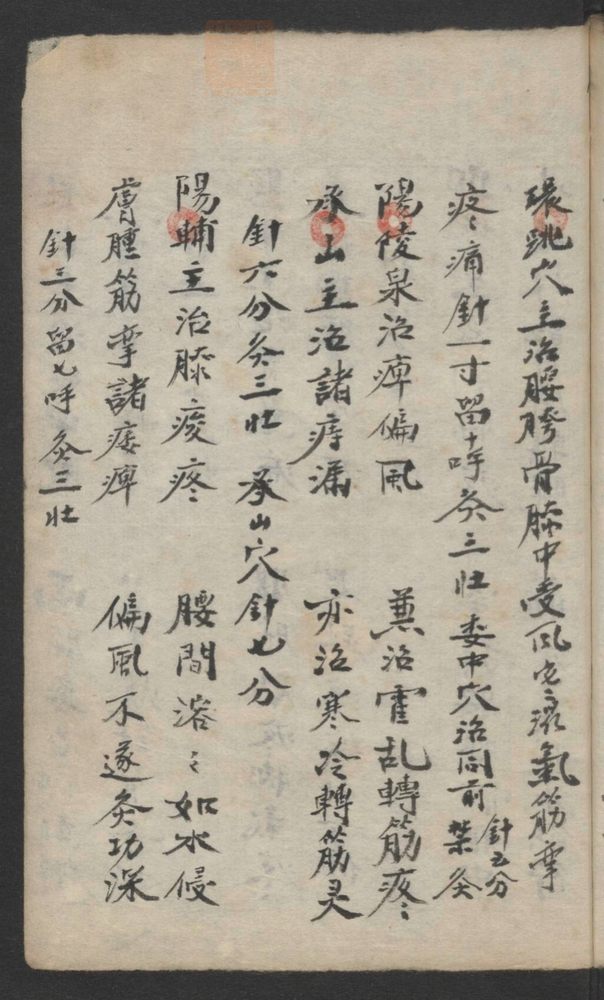 環跳穴主治腰胯骨膝中受風寒濕氣筋攣
疼痛針一寸留十呼灸三壯委中穴治同前針五分禁灸
陽陵泉治痺偏風 兼治霍乱轉筋疼
承山主治諸痔漏 亦治寒冷轉筋灵
針六分灸三壯 承山穴針七分
陽輔主治膝痠疼 腰間溶々如水侵
膚腫筋攣諸痿痺 偏風不遂灸功深
針三分留七呼灸三壯